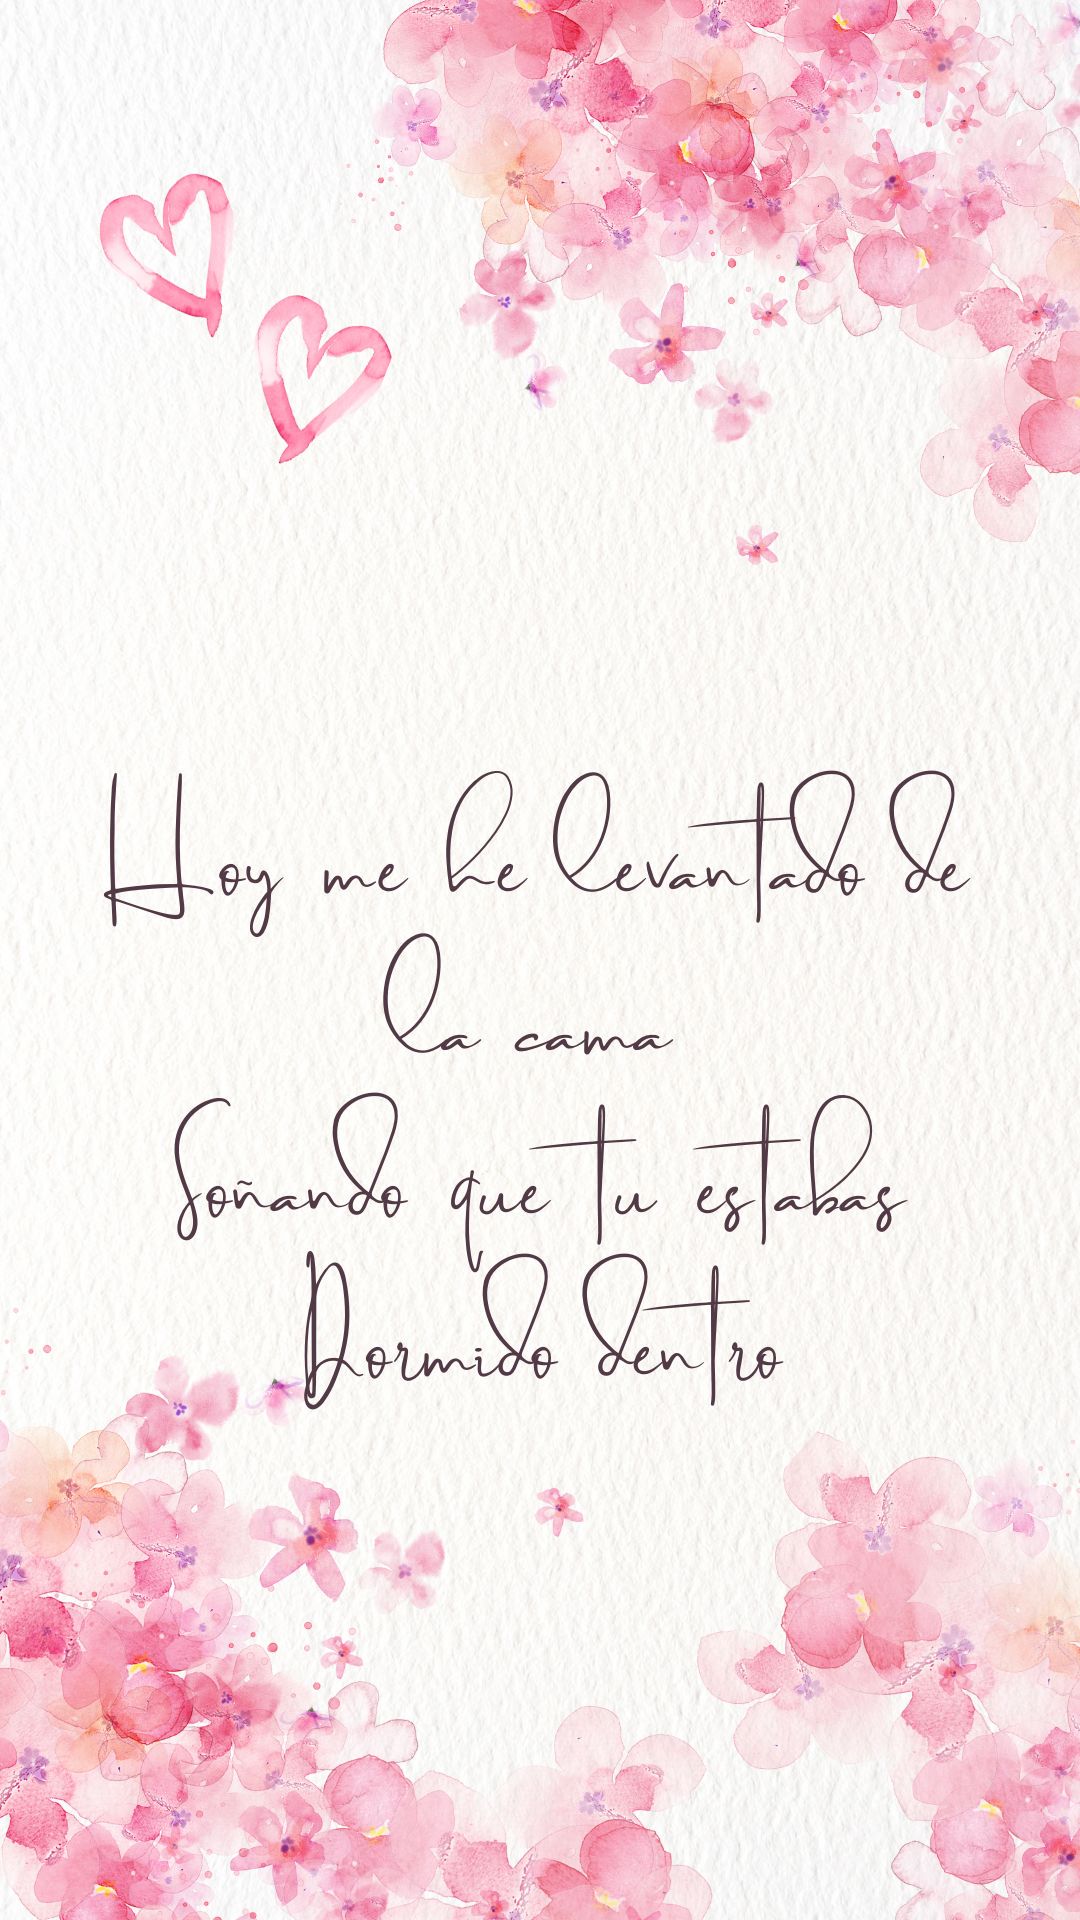 Hoy me he levantado de
la cama
Soñando que tu estabas
Dormido dentro